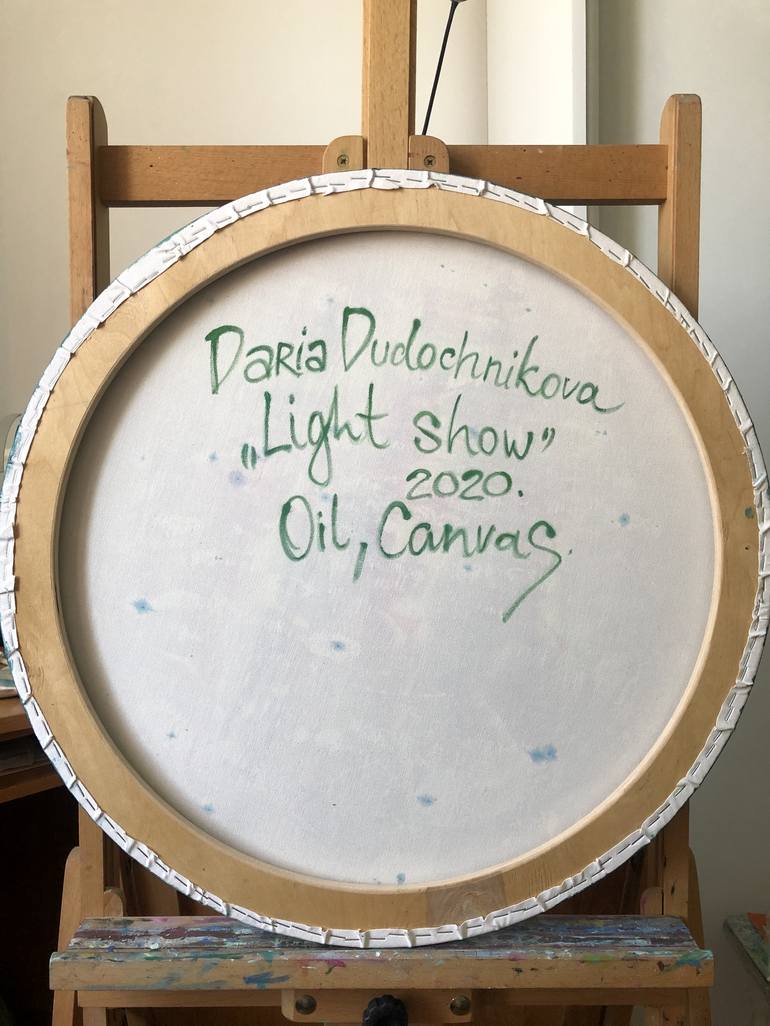 Daria Dudochnikova
„Light show”
2020.
Oil, Canvas.